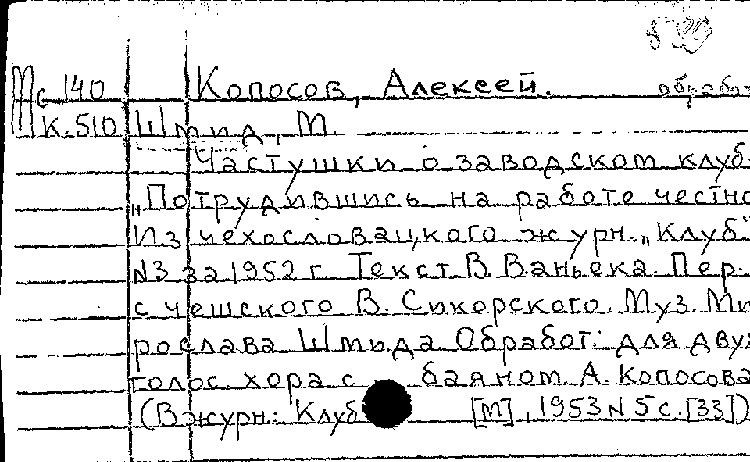 Мс.140 Копосов, Алексей. обработ
К.510 Шмид, М.
Частушки о заводском клуб
„Потрудившись на работе честно
Из чехословацкого журн. „Клуб"
№3 за 1952 г. Текст В. Ваньека. Пер.
с чешского В. Сикорского. Муз. Ми
рослава Шмида Обработ: для двух
голос. хора с баяном А. Копосова
(В журн.: Клуб [М], 1953 №5 с. [33])